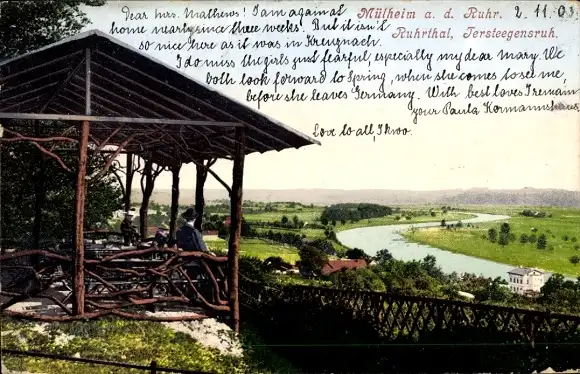 Mülheim a. d. Ruhr. 2. 11. 03
Ruhrthal, Tersteegensruh.
Dear Mrs. Mathews! I am again at
home nearly since three weeks. But it isn't
so nice here as it was in Kreuznach.
I do miss the girls just fearful, especially my dear Mary. We
both look forward to Spring, when she comes to see me,
before she leaves Germany. With best loves I remain
your Paula
Love to all,